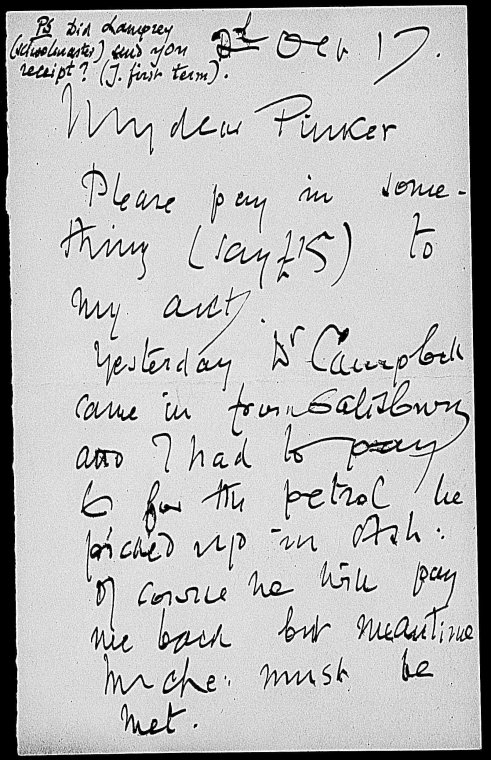 PS Did Lamprey
(schoolmaster) send you
receipt? (J. first term).
2d Oct 17.
My dear Pinker
Please pay in some-
thing (say £15) to
my acct/.
Yesterday Dr Campbell
came in from Salisbury
and I had to pay
for the petrol he
picked up in Ash:
of course he will pay
me back but meantime
my che: must be
met.